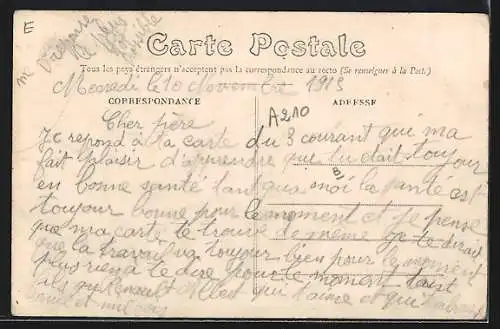 E
Réponse
le plus
possible
Carte Postale
Tous les pays étrangers n'acceptent pas la correspondance au recto (Se renseigner à la Poste)
Mercredi le 10 Novembre 1915
CORRESPONDANCE
ADRESSE
A210
Cher frère
Je repond à ta carte du 3 courant qui ma
fait plaisir d'apprendre que tu etait toujour
en bonne santé tant qua moi la santé est
B
toujour bonne pour le moment et je pense
que ma carte te trouve de meme je te dirait
que la travail va toujour bien pour le moment
plus rien a te dire pour le moment
qui t'aime et qui t'embrasse